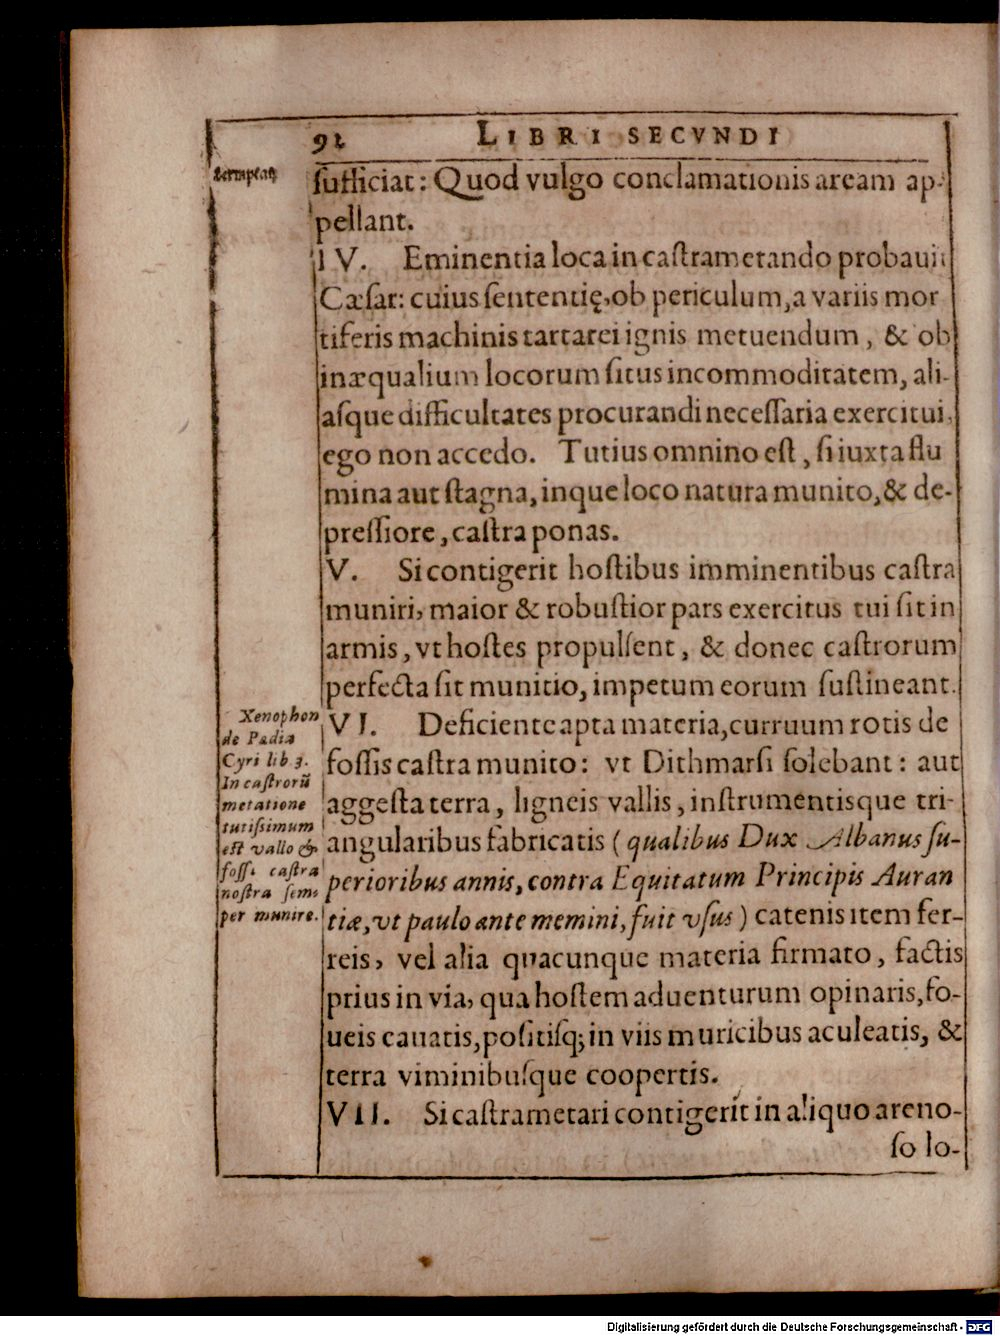 92 LIBRI SECVNDI
ſufficiat: Quod vulgo conclamationis aream ap-
pellant.
IV. Eminentia loca in caſtrametando probauit
Cæſar: cuius ſententię, ob periculum, a variis mor
tiferis machinis tartarei ignis metuendum, & ob
inæqualium locorum ſitus incommoditatem, ali-
aſque difficultates procurandi neceſſaria exercitui,
ego non accedo. Tutius omnino eſt, ſi iuxta flu
mina aut ſtagna, inque loco natura munito, & de-
preſſiore, caſtra ponas.
V. Si contigerit hoſtibus imminentibus caſtra
muniri, maior & robuſtior pars exercitus tui ſit in
armis, vt hoſtes propulſent, & donec caſtrorum
perfecta ſit munitio, impetum eorum ſuſtineant.
Xenophon
de Pædia
Cyri lib 3.
In caſtrorũ
metatione
tutiſsimum
eſt vallo &
foſſ. caſtra
noſtra ſem-
per munire.
VI. Deficiente apta materia, curruum rotis de
foſſis caſtra munito: vt Dithmarſi ſolebant: aut
aggeſta terra, ligneis vallis, inſtrumentisque tri-
angularibus fabricatis (qualibus Dux Albanus ſu-
perioribus annis, contra Equitatum Principis Auran
tiæ, vt paulo ante memini, fuit vſus) catenis item fer-
reis, vel alia quacunque materia firmato, factis
prius in via, qua hoſtem aduenturum opinaris, fo-
ueis cauatis, poſitiſq; in viis muricibus aculeatis, &
terra viminibuſque coopertis.
VII. Si caſtrametari contigerit in aliquo areno-
ſo lo-
Digitalisierung gefördert durch die Deutsche Forschungsgemeinschaft - DFG